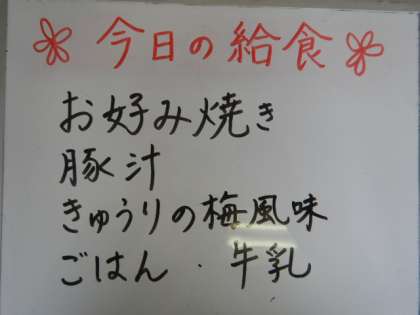 今日の給食
お好み焼き
豚汁
きゅうりの梅風味
ごはん・牛乳